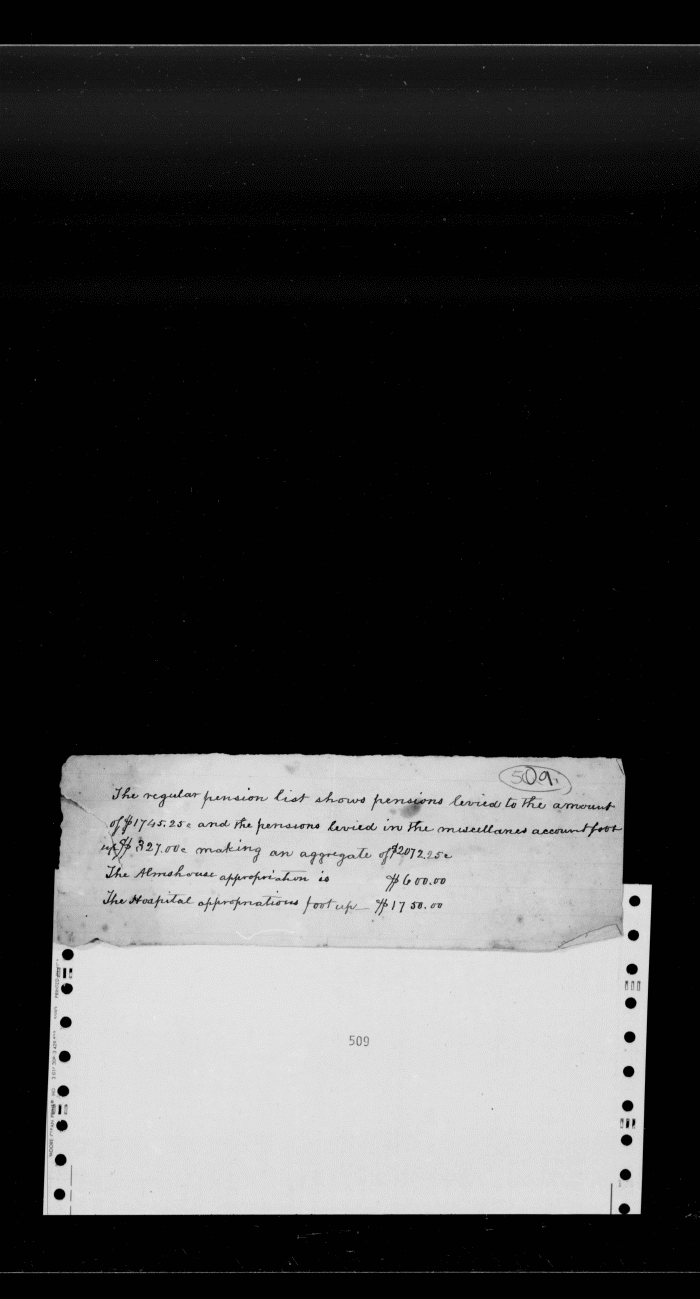 509.
The regular pension list shows pensions levied to the amount
of $1745.25c and the pensions levied in the miscellanes account foot
up $327.00c making an aggregate of $2072.25c
The Almshouse appropriation is $600.00
The Hospital appropriations foot up $1750.00
509